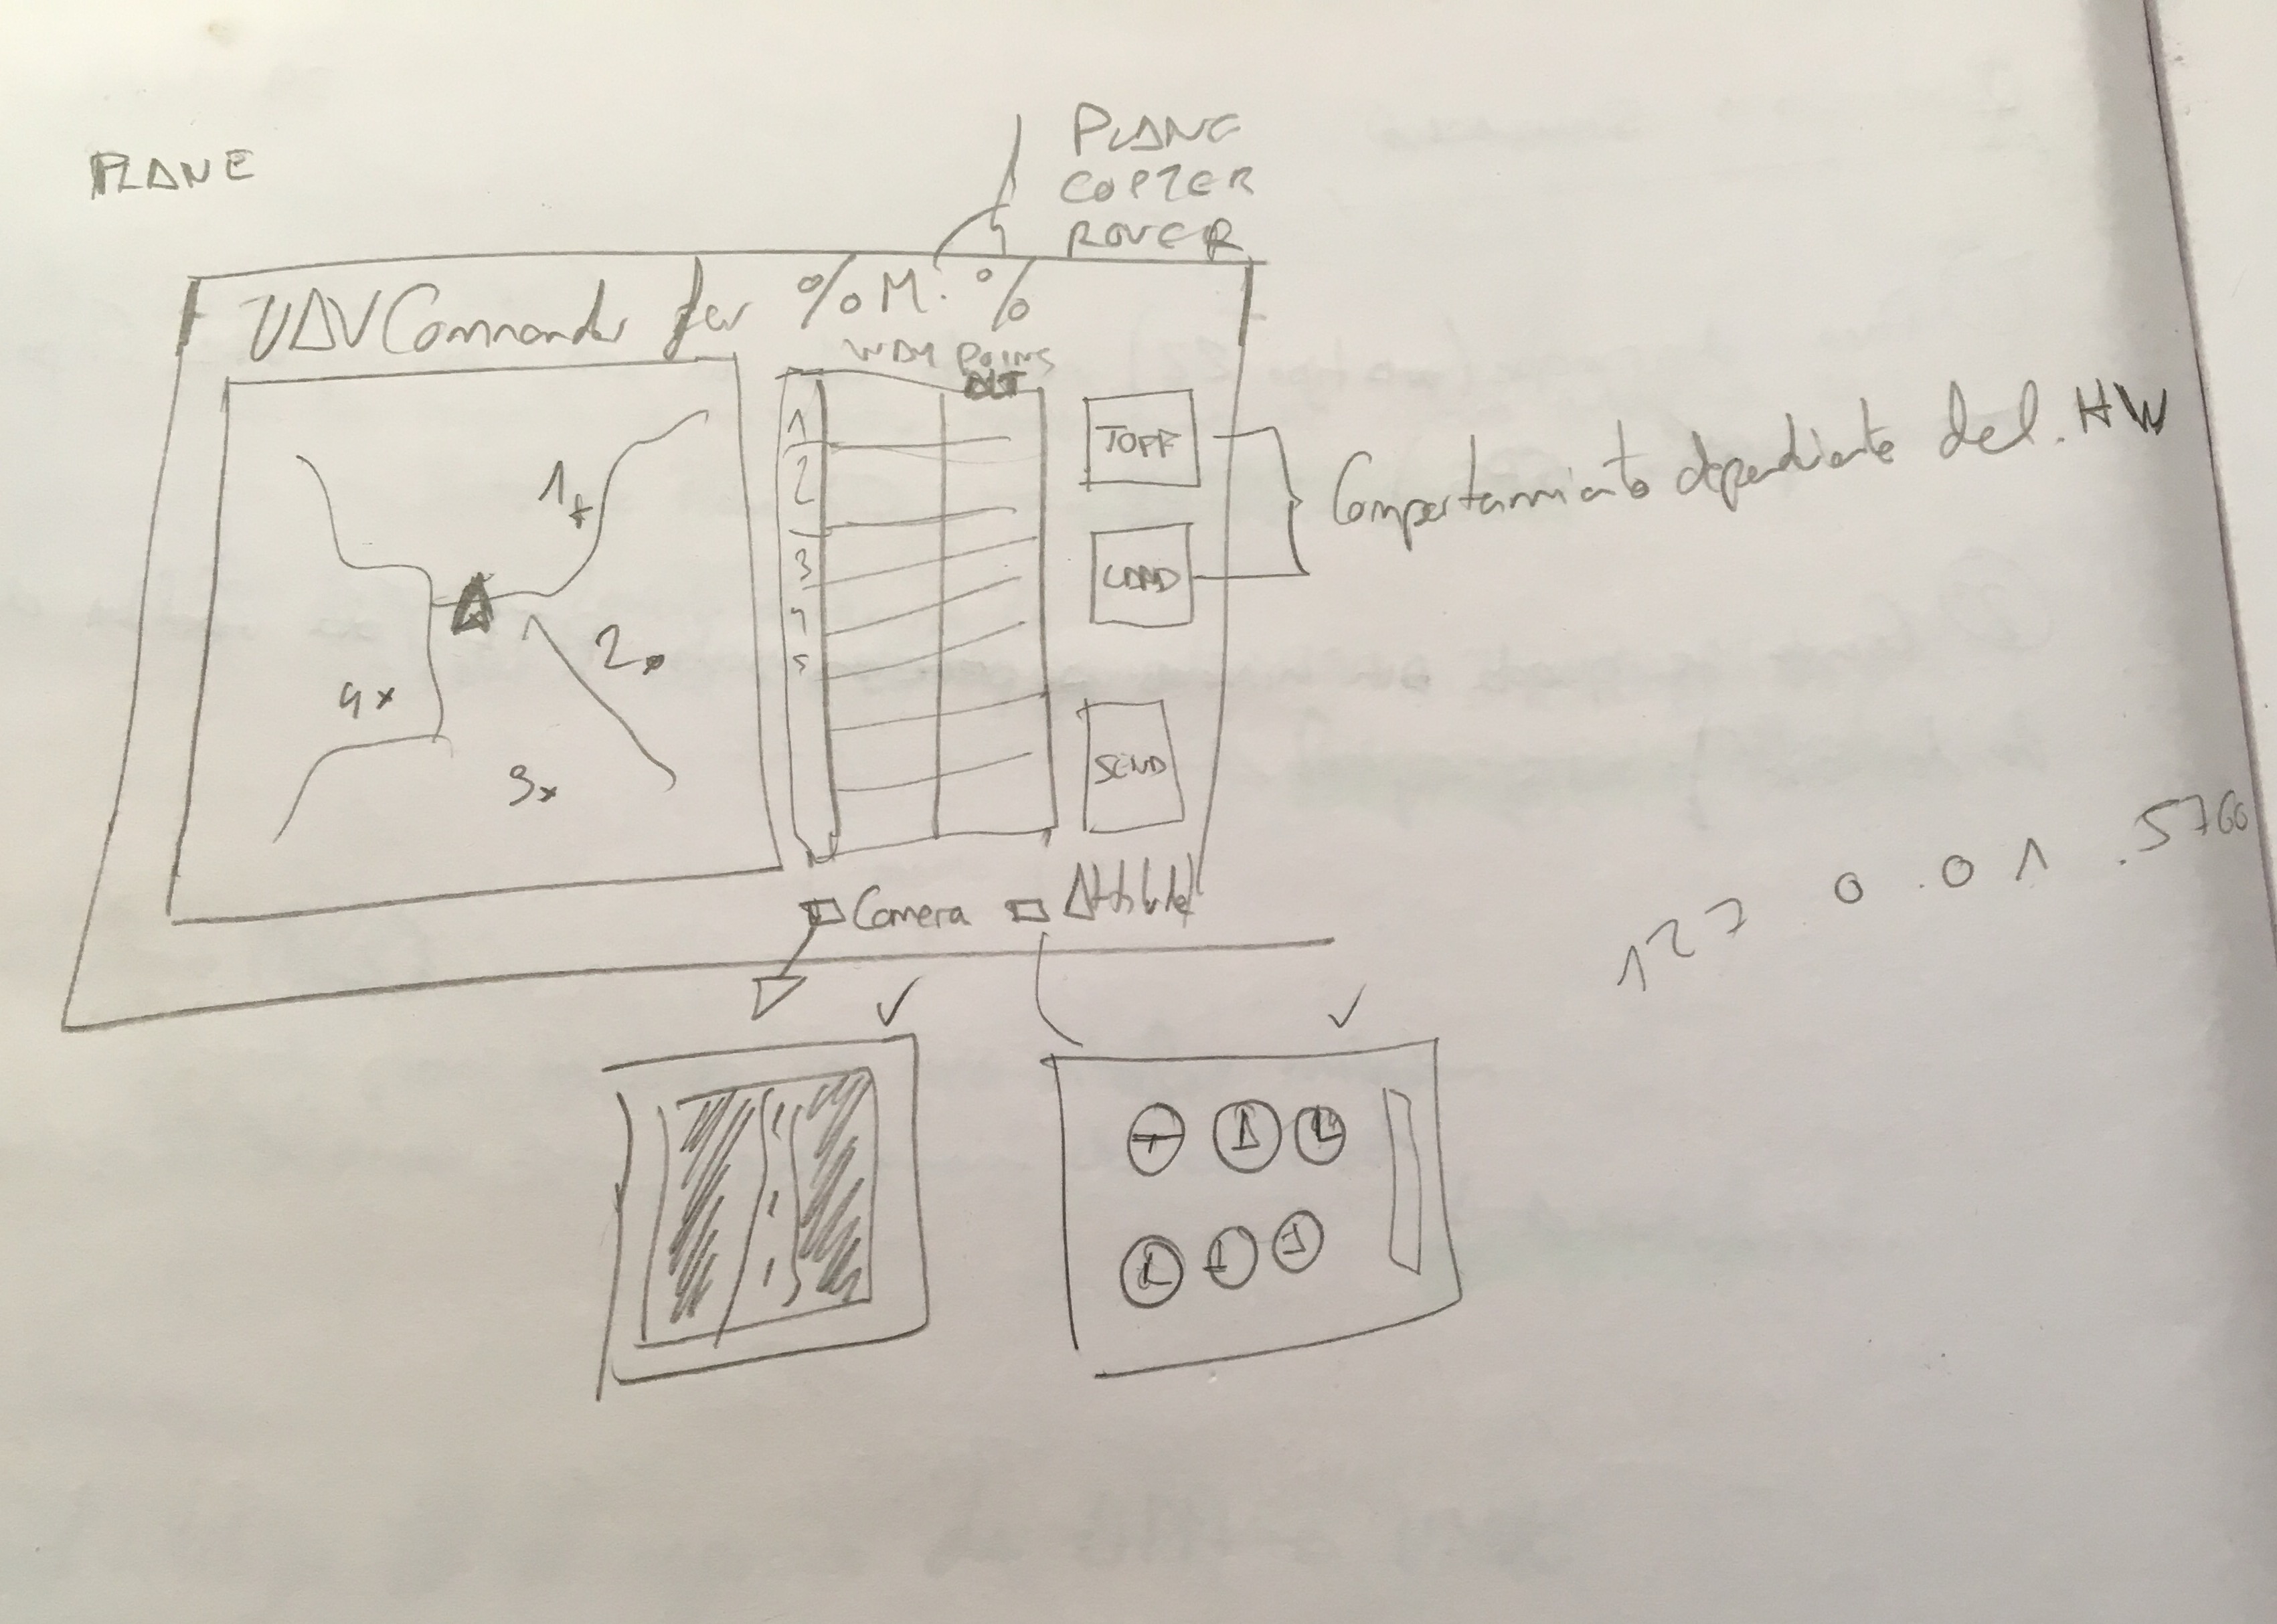 PLANE
PLANE
COPTER
ROVER
UAV Commander for %M.%
WAY POINS
ALT
1
2
3
4
5
TOFF
LOAD
SEND
Comportamiento dependiente del HW
1+
2
3x
4x
Camera
Attitude
127 0.01.5760